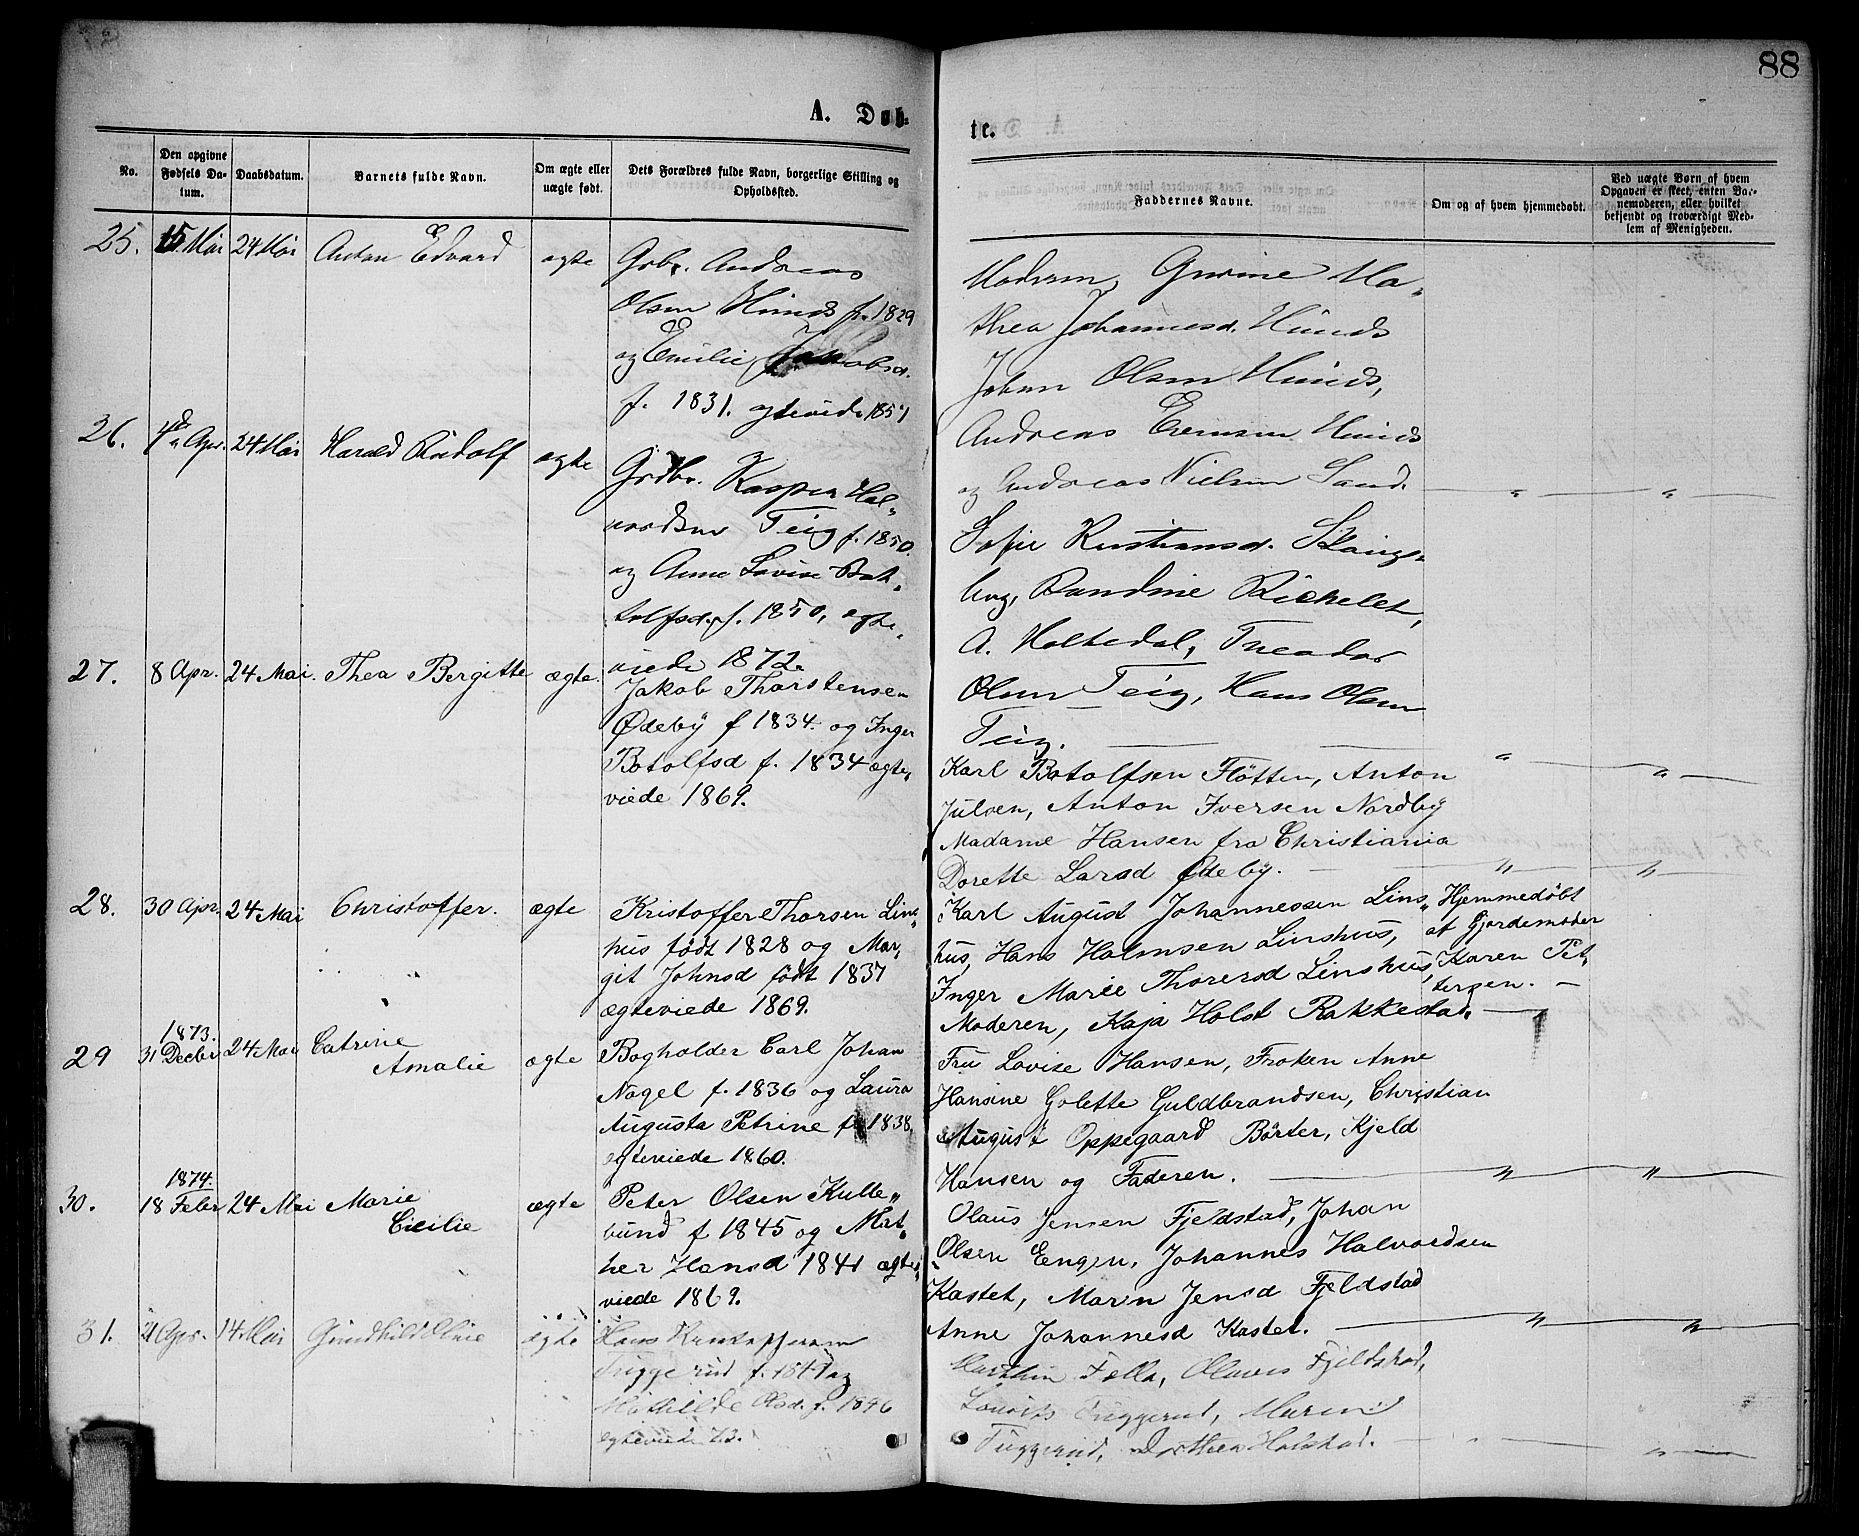 88
A. Døb-
te.
No.
Den opgivne Fødsels Datum.
Daabsdatum.
Barnets fulde Navn.
Om ægte eller uægte født.
Dets Forældres fulde Navn, borgerlige Stilling og Opholdssted.
Faddernes Navne.
Om og af hvem hjemmedøbt.
Ved uægte Børn af hvem Opgaven er skeet, enten Barnemoderen, eller hvilket bekjendt og troværdigt Medlem af Menigheden.
25. 15 Mai 24 Mai Anton Edvard ægte
Grbr. Andreas
Olsen Hunds f. 1829
og Emilie Jakobsd.
f. 1831. ægteviede 1857
Moderen, Gurine Ma-
thea Johannesd. Hunds
Johan Olsen Hunds,
Andreas Evensen Hunds
og Andreas Nielsen Sand.
26. 4de Apr. 24 Mai Harald Rudolf ægte
Grdbr. Kasper Hal-
vordsen Teig f. 1850.
og Anne Lovise Bot-
tolfsd. f. 1850, ægte-
viede 1872.
Sofie Kristiansd.
Randine
A. Holtedal, Theodor
Olsen Teig, Hans Olsen
Teig.
27. 8 Apr. 24 Mai. Thea Bergitte ægte.
Jakob Thorstensen
Ødeby f 1834. og Inger
Botolfsd f. 1834 ægte,,
viede 1869.
Karl Botolfsen Fløtten, Anton
Julsen, Anton Iversen Nordby
Madame Hansen fra Christiania
Dorette Larsd Ødeby.
28. 30 Apr. 24 Mai Christoffer. ægte
Kristoffer Thorsen Lins,,
hus født 1828 og Mar,,
git Johnsd født 1837
ægteviede 1869.
Karl August Johannessen Lins,,
hus, Hans Holmsen Linshus,
Inger Marie Thorersd Linshus,
Moderen, Kaja Holst Rakkestad.
Hjemmedøbt
af Gjordemoder
Karen Pet,,
tersen.
29 1873. 31 Decbr 24 Mai Catrine
Amalie ægte
Bogholder Carl Johan
Nagel f. 1836 og Laura
Augusta Petrine f. 1838,
ægteviede 1860.
Fru Lovise Hansen, Frøken Anne
Hansine Golette Guldbrandsen, Christian
August Oppegaard Børter, Kjeld
Hansen og Faderen.
30. 1874. 18 Febr 24 Mai Marie
Cicilie ægte
Peter Olsen Kulle,,
bund f 1845 og Mat,,
hea Hansd 1841 ægte,,
viede 1869.
Olaus Jensen Fjeldstad, Johan
Olsen Engen, Johannes Halvordsen
Kastet, Maren Jensd Fjeldstad
Anne Johannesd Kastet.
31. 21 Apr. 14 Mai Gundhild Oline ægte
Hans Kristoffersen
Tuggerud f. 1849 og
Mathilde Olsd. f. 1846
ægteviede 73.
Marthin Fjeld, Olaves Fjeldstad,
Lovise Tuggerud, Maren
Tuggerud, Dorthea Holstad.